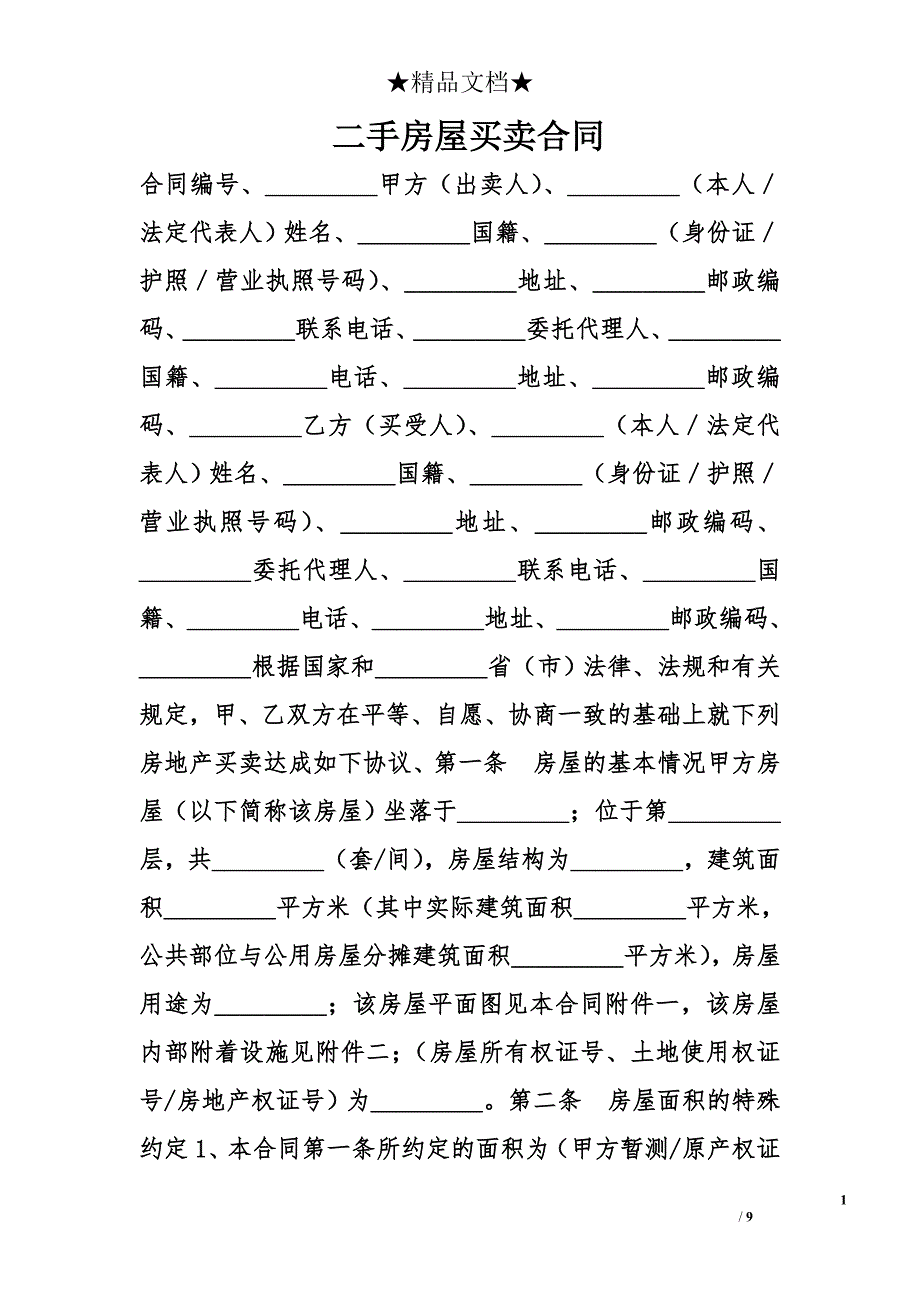 ★精品文档★
二手房屋买卖合同
合同编号、_________甲方（出卖人）、_________（本人／
法定代表人）姓名、_________国籍、_________（身份证／
护照／营业执照号码）、_________地址、_________邮政编
码、_________联系电话、_________委托代理人、_________
国籍、_________电话、_________地址、_________邮政编
码、_________乙方（买受人）、_________（本人／法定代
表人）姓名、_________国籍、_________（身份证／护照／
营业执照号码）、_________地址、_________邮政编码、
_________委托代理人、_________联系电话、_________国
籍、_________电话、_________地址、_________邮政编码、
_________根据国家和_________省（市）法律、法规和有关
规定，甲、乙双方在平等、自愿、协商一致的基础上就下列
房地产买卖达成如下协议、第一条　房屋的基本情况甲方房
屋（以下简称该房屋）坐落于_________；位于第_________
层，共_________（套/间），房屋结构为_________，建筑面
积_________平方米（其中实际建筑面积_________平方米，
公共部位与公用房屋分摊建筑面积_________平方米），房屋
用途为_________；该房屋平面图见本合同附件一，该房屋
内部附着设施见附件二；（房屋所有权证号、土地使用权证
号/房地产权证号）为_________。第二条　房屋面积的特殊
约定 1、本合同第一条所约定的面积为（甲方暂测/原产权证
1
/ 9